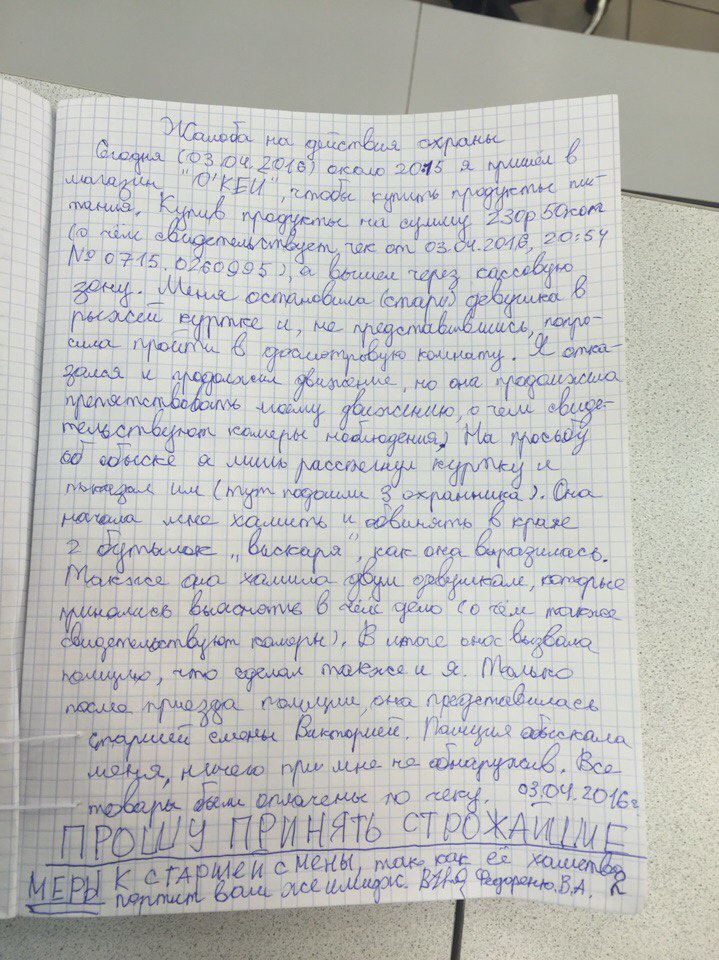 Жалоба на действия охраны
Сегодня (03.04.2016) около 2015 я пришёл в
магазин "О'КЕЙ", чтобы купить продукты пи-
тания. Купив продукты на сумму 230р 50коп
(о чём свидетельствует чек от 03.04.2016, 20:54
№ 0715.0260995), я вышел через кассовую
зону. Меня остановила (стари) девушка в
рыжей куртке и, не представившись, попро-
сила пройти в досмотровую комнату. Я отка-
зался и продолжил движение, но она продолжила
препятствовать моему движению, о чем свиде-
тельствуют камеры наблюдения) На просьбу
об обыске я лишь расстегнул куртку и
показал им (тут подошли 3 охранника). Она
начала мне хамить и обвинять в краже
2 бутылок „вискаря", как она выразилась.
Также она хамила двум девушкам, которые
принялись выяснять в чём дело (о чём также
свидетельствуют камеры). В итоге она вызвала
полицию, что сделал также и я. Только
после приезда полиции, она представилась
старшей смены Викторией. Полиция обыскала
меня, ничего при мне не обнаружив. Все
товары были оплачены по чеку. 03.04.2016г
ПРОШУ ПРИНЯТЬ СТРОЖАЙШИЕ
МЕРЫ К СТАРШЕЙ СМЕНЫ, так как её хамство
портит вам же имидж. Федоренко В.А.